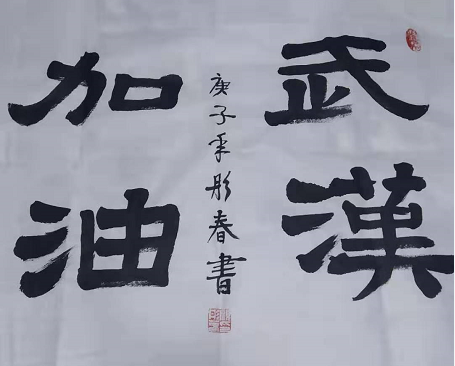 武漢
加油
庚子年彤春書